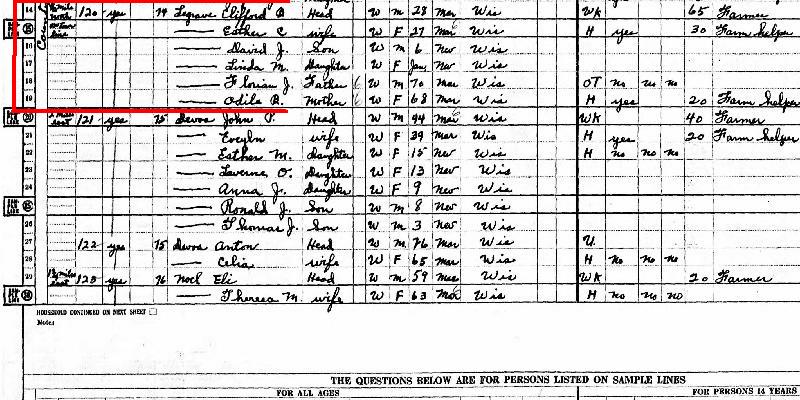 14 120 yes 74 Legrave Clifford B Head W M 28 Mar Wis WK 65 Farmer
Esther C wife W F 27 Mar Wis H yes 30 Farm helper
16 David J. Son W M 6 Nev Wis
17 Linda M. Daughter W F Jan Nev Wis
18 Florian J. Father W M 70 Mar Wis OT no no no
19 Odile B. Mother W F 68 Mar Wis H yes 20 Farm helper
121 yes 75 Devos John P. Head W M 44 Mar Wis WK 40 Farmer
21 Evelyn wife W F 39 Mar Wis H yes 20 Farm helper
22 Esther M. Daughter W F 15 Nev Wis H no no no
23 Laverne O. Daughter W F 13 Nev Wis
24 Anna J. Daughter W F 9 Nev Wis
Ronald J. Son W M 8 Nev Wis
26 Thomas J. Son W M 3 Nev Wis
27 122 yes 75 Devos Anton Head W M 76 Mar Wis U
28 Celia W F 65 Mar Wis H no no no
29 123 yes 76 Noel Eli Head W M 59 Mar Wis WK 20 Farmer
Theresa M. wife W F 63 Mar Wis H no no no
HOUSEHOLD CONTINUED ON NEXT SHEET
Notes
THE QUESTIONS BELOW ARE FOR PERSONS LISTED ON SAMPLE LINES
FOR ALL AGES FOR PERSONS 14 YEARS